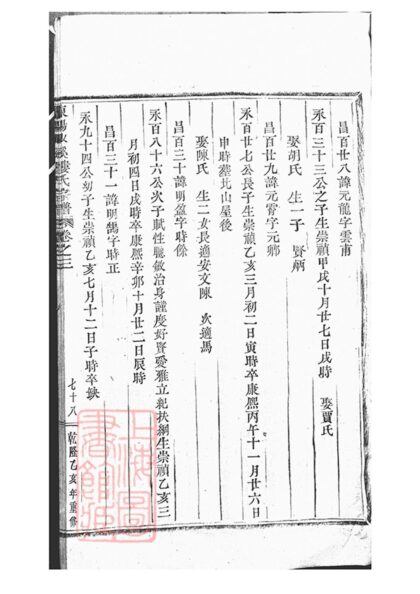 昌百廿八諱元龍字雲甫
永百三十三公之子生崇禎甲戌十月廿七日戌時　娶賈氏
娶胡氏　生一子　賢炳
昌百廿九諱元霄字元鄉
永百廿七公長子生崇禎乙亥三月初二日寅時卒康熙丙午十一月廿六日
申時葬北山屋後
娶陳氏　生二女長適安文陳　次適馬
昌百三十諱明盈字時保
永百八十六公次子賦性聰敏治身謹慶好賢愛雅立紀扶綱生崇禎乙亥三
月初四日戌時卒康熙辛卯十月廿二日辰時
昌百三十一諱明鵠字時正
永九十四公幼子生崇禎乙亥七月十二日子時卒缺
東陽 溪樓氏宗譜 卷之三
七十八
乾隆乙亥年重修
上海圖書館藏